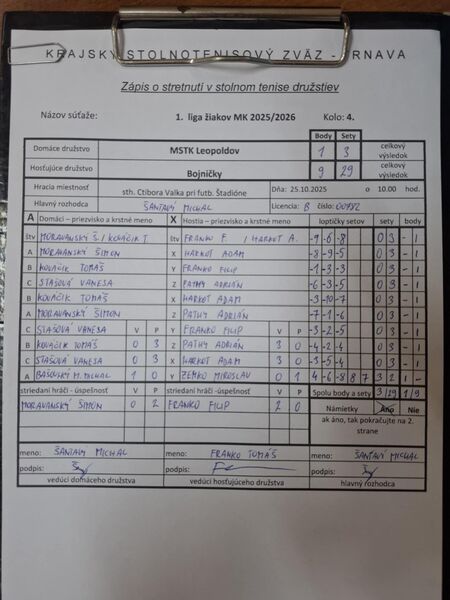 KRAJSKÝ STOLNOTENISOVÝ ZVÄZ - TRNAVA
Zápis o stretnutí v stolnom tenise družstiev
Názov súťaže: 1. liga žiakov MK 2025/2026 Kolo: 4.
Body Sety
Domáce družstvo MSTK Leopoldov 1 3 celkový výsledok
Hosťujúce družstvo Bojničky 9 29 celkový výsledok
Hracia miestnosť sth. Ctibora Valka pri futb. Štadióne Dňa: 25.10.2025 o 10.00 hod.
Hlavný rozhodca ŠANTAVÝ MICHAL Licencia: B číslo:
A Domáci - priezvisko a krstné meno X Hostia - priezvisko a krstné meno loptičky setov sety body
štv MORAVANSKÝ Š. / KOVÁČIK T. štv FRANKO F. / HARKOT A. -9 -6 -8 0 3 - 1
A MORAVANSKÝ ŠIMON X HARKOT ADAM -8 -9 -5 0 3 - 1
B KOVÁČIK TOMÁŠ Y FRANKO FILIP -1 -3 -3 0 3 - 1
C STAŠOVÁ VANESA Z PATHY ADRIÁN -6 -3 -5 0 3 - 1
B KOVÁČIK TOMÁŠ X HARKOT ADAM -3 -10 -7 0 3 - 1
A MORAVANSKÝ ŠIMON Z PATHY ADRIÁN -7 -1 -6 0 3 - 1
C STAŠOVÁ VANESA V P Y FRANKO FILIP V P -3 -2 -5 0 3 - 1
B KOVÁČIK TOMÁŠ 0 3 Z PATHY ADRIÁN 3 0 -4 -2 -4 0 3 - 1
C STAŠOVÁ VANESA 0 3 X HARKOT ADAM 3 0 -3 -5 -4 0 3 - 1
A MICHAL 1 0 Y ZEMKO MIROSLAV 0 1 4 -6 -8 8 7 3 2 1 -
striedaní hráči -úspešnosť V P striedaní hráči -úspešnosť V P Spolu body a sety 3/29 1/9
MORAVANSKÝ ŠIMON 0 2 FRANKO FILIP 2 0 Námietky Áno Nie
ak áno, tak pokračujte na 2. strane
meno: ŠANTAVÝ MICHAL meno: FRANKO TOMÁŠ meno: ŠANTAVÝ MICHAL
podpis: podpis: podpis:
vedúci domáceho družstva vedúci hosťujúceho družstva hlavný rozhodca